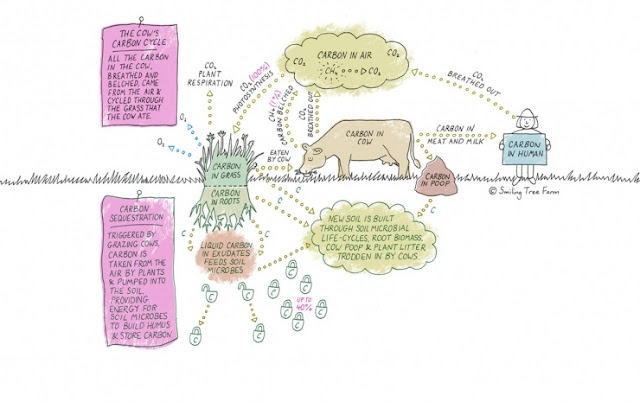 THE COW'S
CARBON CYCLE
ALL THE CARBON
IN THE COW,
BREATHED AND
BELCHED, CAME
FROM THE AIR &
CYCLED THROUGH
THE GRASS THAT
THE COW ATE.
CO₂
PLANT
RESPIRATION
O₂
O₂
CO₂ (100%)
PHOTOSYNTHESIS
CH₄ (1%)
CARBON BELCHED
CO₂
BREATHED OUT
CARBON IN AIR
CO₂
CO₂
CO₂
CH₄
CO₂
CO₂
BREATHED OUT
CARBON IN
COW
CARBON IN
MEAT AND MILK
CARBON
IN HUMAN
© Smiling Tree Farm
EATEN
BY COW
CARBON
IN GRASS
CARBON
IN ROOTS
CARBON
IN POOP
CARBON
SEQUESTRATION
TRIGGERED BY
GRAZING COWS.
CARBON IS
TAKEN FROM THE
AIR BY PLANTS
& PUMPED INTO
THE SOIL.
PROVIDING
ENERGY FOR
SOIL MICROBES
TO BUILD HUMUS
& STORE CARBON
C
C
C
C
C
LIQUID CARBON
IN EXUDATES
FEEDS SOIL
MICROBES
NEW SOIL IS BUILT
THROUGH SOIL MICROBIAL
LIFE-CYCLES, ROOT BIOMASS,
COW POOP & PLANT LITTER
TRODDEN IN BY COWS.
UP TO
40%
C
C
C
C
C
C
C
C
C
C